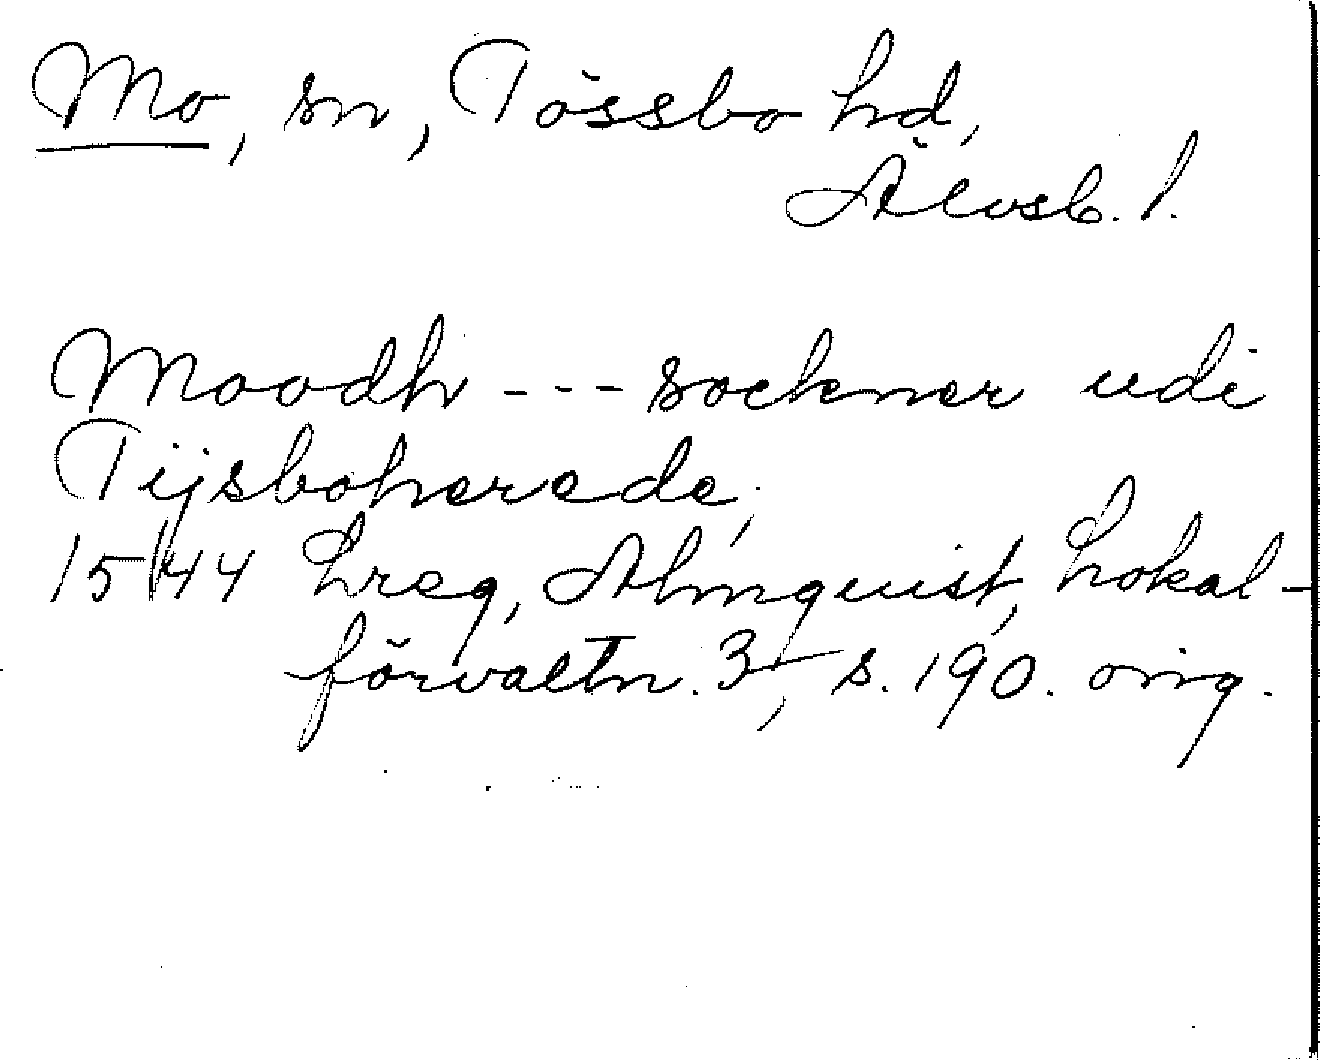 Mo, sn, Tössbo hd,
Älvsb. l.
Moodh --- sockner udi
Tijsboherede,
1544 Lreg, Almquist, Lokal-
förvaltn. 3, s. 190. orig.